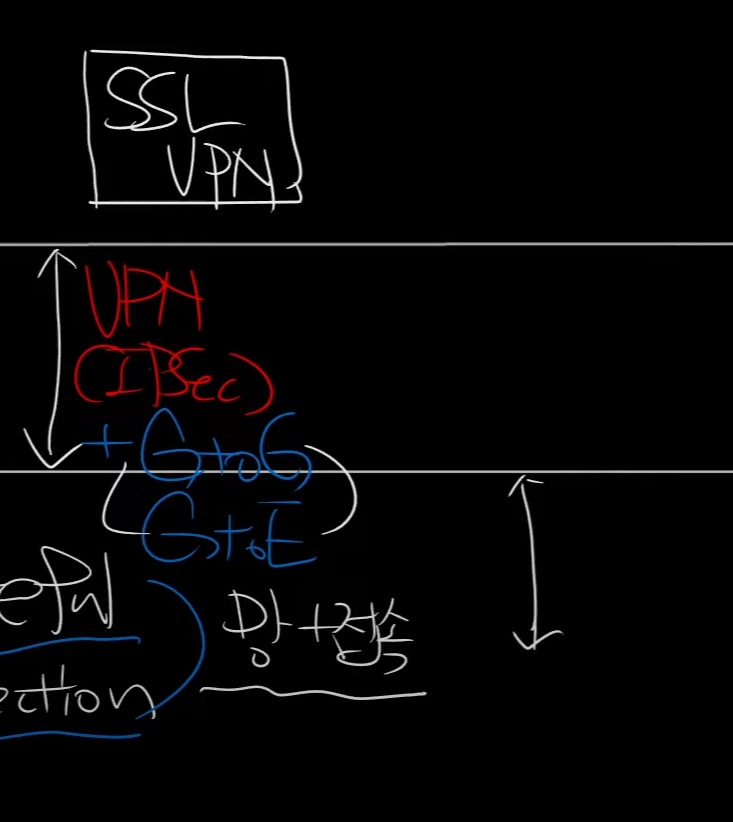 SSL
VPN
VPN
(IPSec)
+ GtoG
GtoE
망+전송
ection